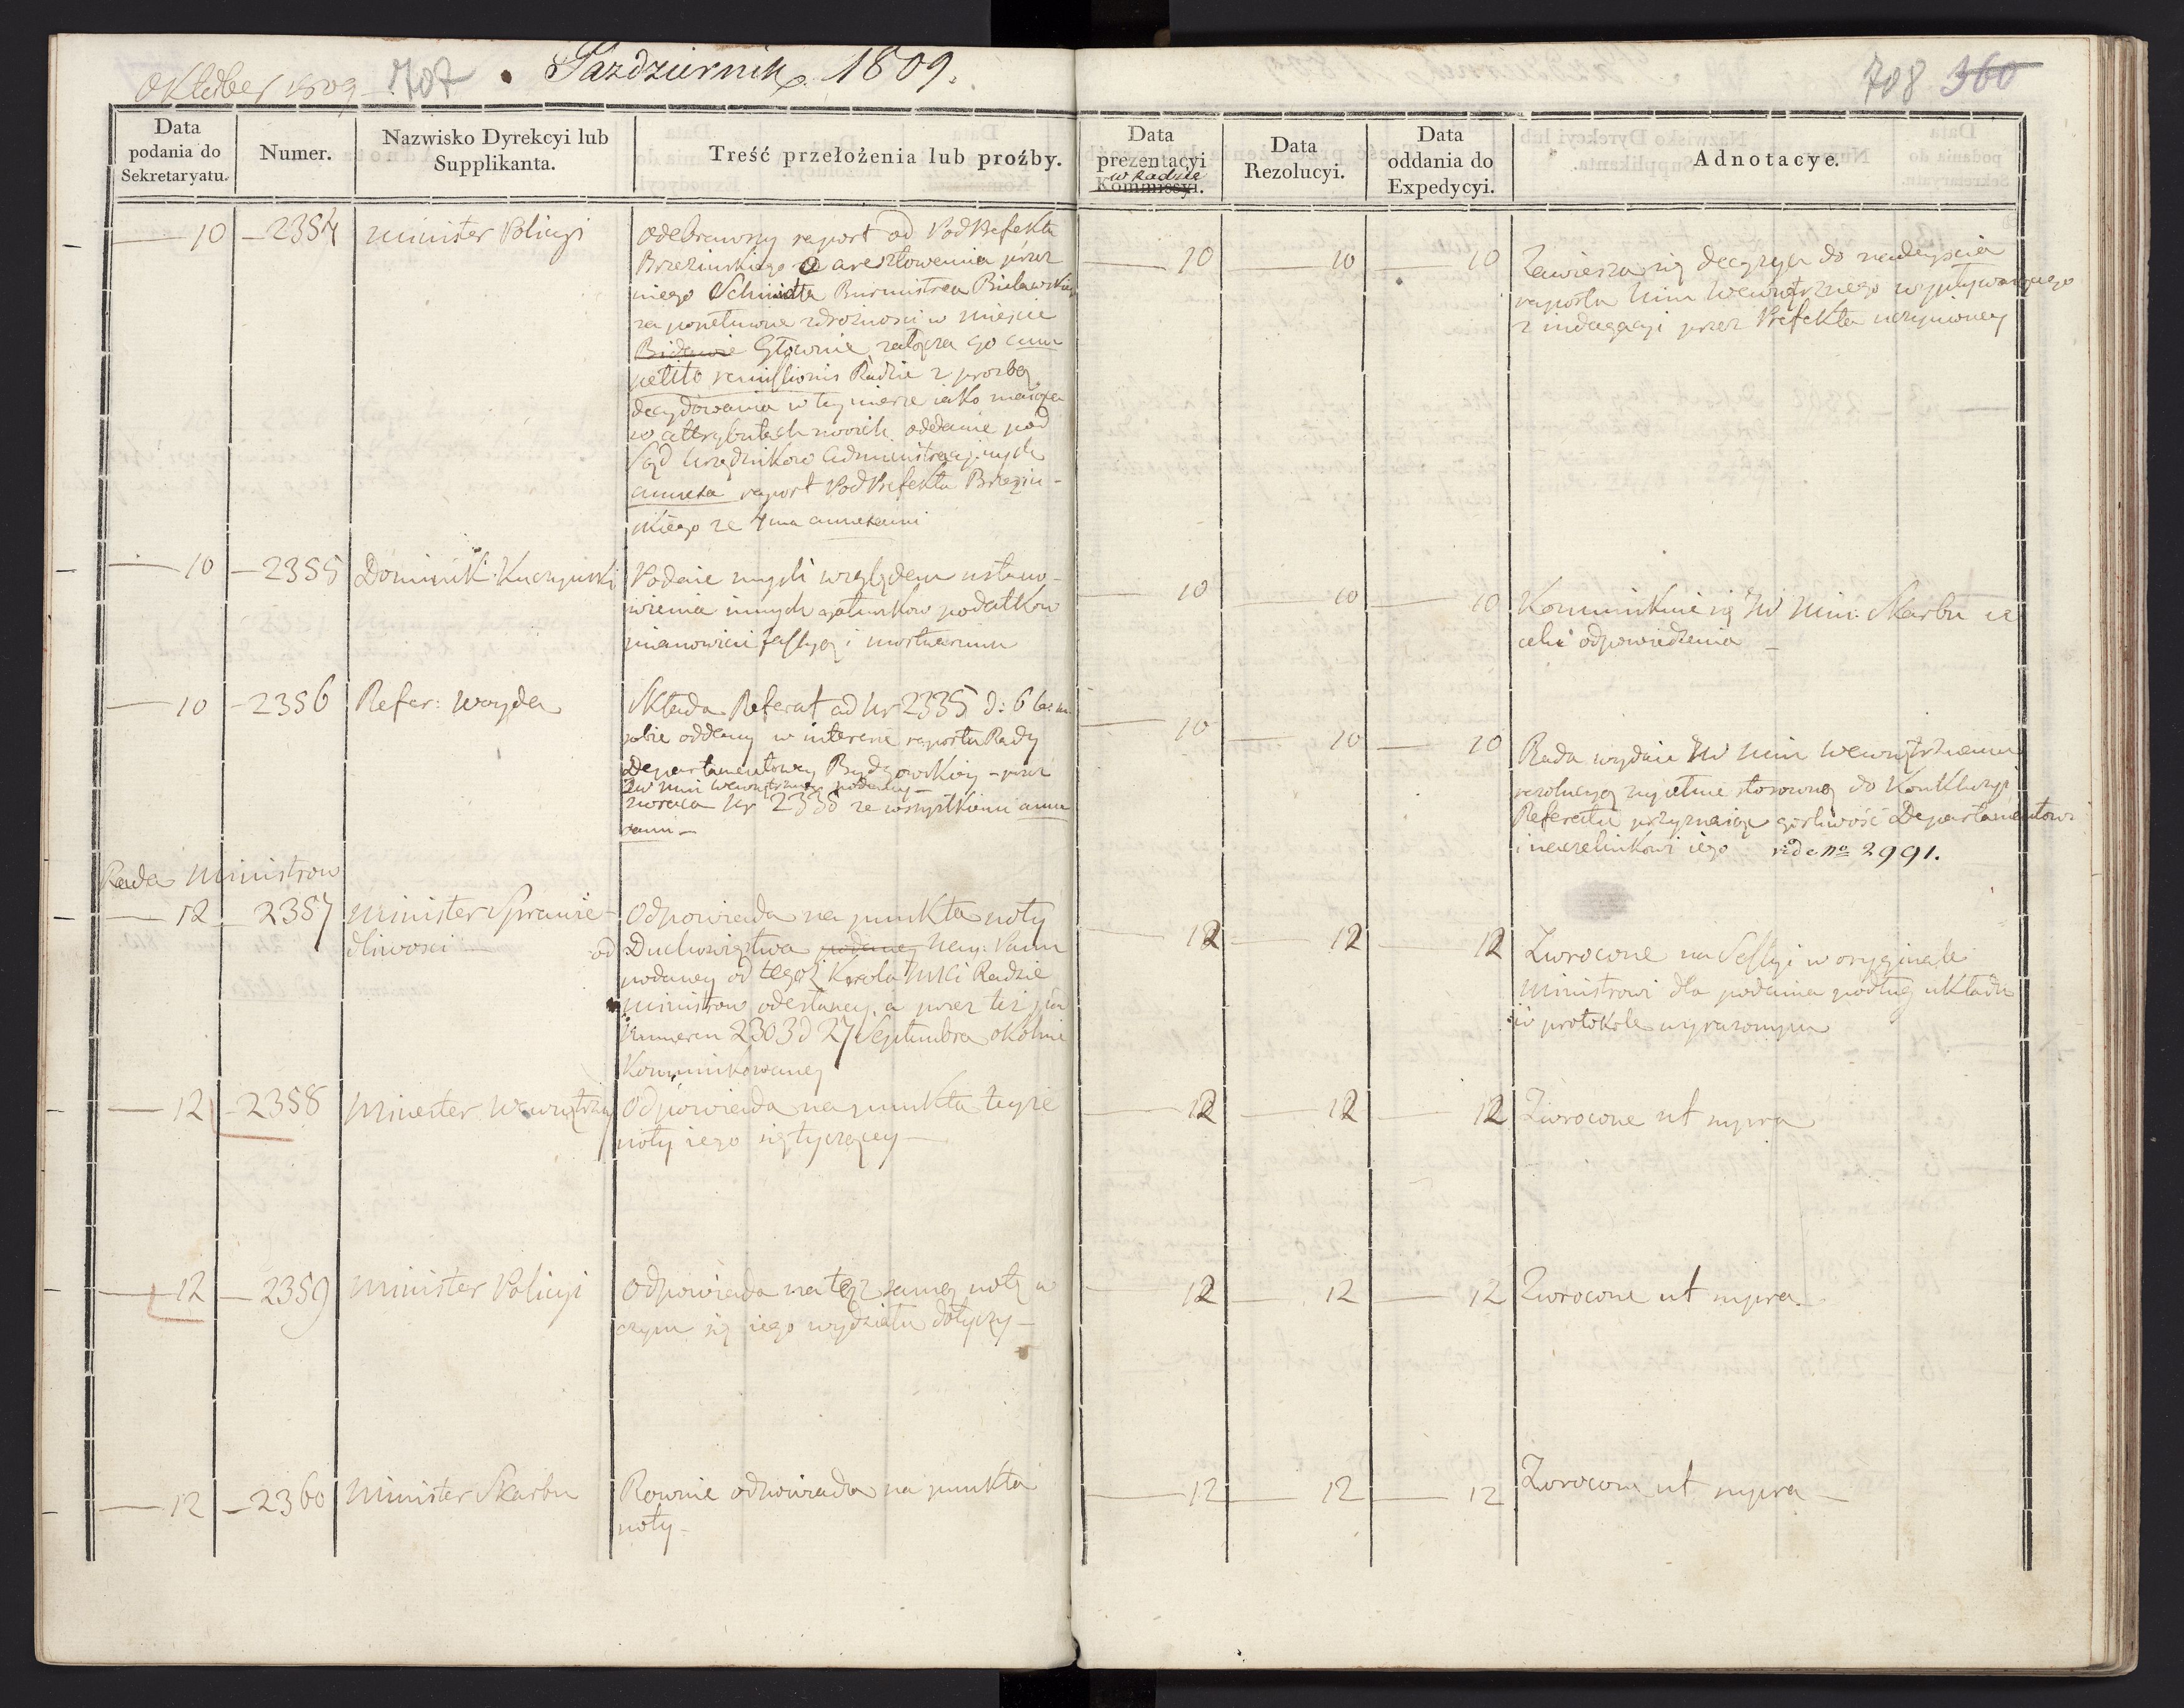 Oktober 1809 707 Pazdziernik. 1809.
708 360
Data podania do Sekretaryatu.
Numer.
Nazwisko Dyrekcyi lub Supplikanta.
Treść przełożenia lub proźby.
Data prezentacyi Kommissyi. w Radzie
Data Rezolucyi.
Data oddania do Expedycyi.
Adnotacye.
10 2354 Minister Policyi
Odebrawszy raport od PodPrefekta
Brzezinskiego o aresztowaniu przez
niego Schmidta Burmistrza
w miejscu
Głownie załącza go cum
petito remissionis Radzie z prozbą
decydowania w tey mierze iako maiąca
w attrybutach swoich oddanie pod
Sąd Urzędnikow administracyjnych
annexa raport PodPrefekta Brzezin-
skiego ze 4ma annexami
10 10 10
Zawiesza się decyzya do nadeyscia
raportu Min Wewnętrznego wypływaiącego
z indagacyi przez Prefekta uczynioney
10 2355 Dominik Kuczynski
Podaie mysli względem ustano-
wienia innych gatunkow podatkow
mianowicie
10 10 10
Kommunikuie się JW Min: Skarbu w
celu odpowiedzenia
10 2356 Refer: Woyda
Składa Referat ad Nr 2335 d: 6 b: m.
sobie oddany w interesie raportu Rady
Departamentowey Bydgowskiey - przez
JW Min Wewnętrznego podany -
zwraca Nr 2335 ze wszystkiemi anne
xami -
10 10 10
Rada wydaie JW Min Wewnętrznemu
rezolucyą zupełnie stosowną do Konkluzyi
Referatu przyznaiąc gorliwość Departamentowi
i naczelnikowi iego vide no 2991.
Rada Ministrow
12 2357 Minister Sprawie-
dliwosci
Odpowiada na punkta noty
od Duchowieństwa podaney Nay: Panu
podaney od tegoż Krola JMci Radzie
Ministrow odesłaney a przez też pod
Numerem 2303 d 27 Septembra okolnie
Kommunikowaney
12 12 12
Zwrocone na Sessyi w oryginale
Ministrowi dla podania podług układu
w protokole wyrazonym
12 2358 Minister Wewnętrzny
Odpowiada na punkta teyże
noty iego się tyczącey
12 12 12 Zwrocone ut supra
12 2359 Minister Policyi
Odpowiada na też samą notę w
czym się iego wydziału dotyczy -
12 12 12 Zwrocone ut supra
12 2360 Minister Skarbu
Rownie odpowiada na punkta
noty -
12 12 12 Zwrocone ut supra